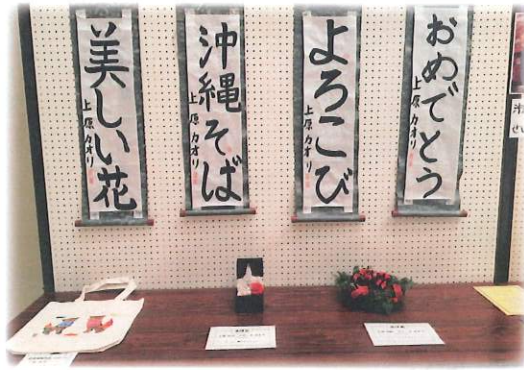 美しい花
上原カオリ
沖縄そば
上原カオリ
よろこび
上原カオリ
おめでとう
上原カオリ